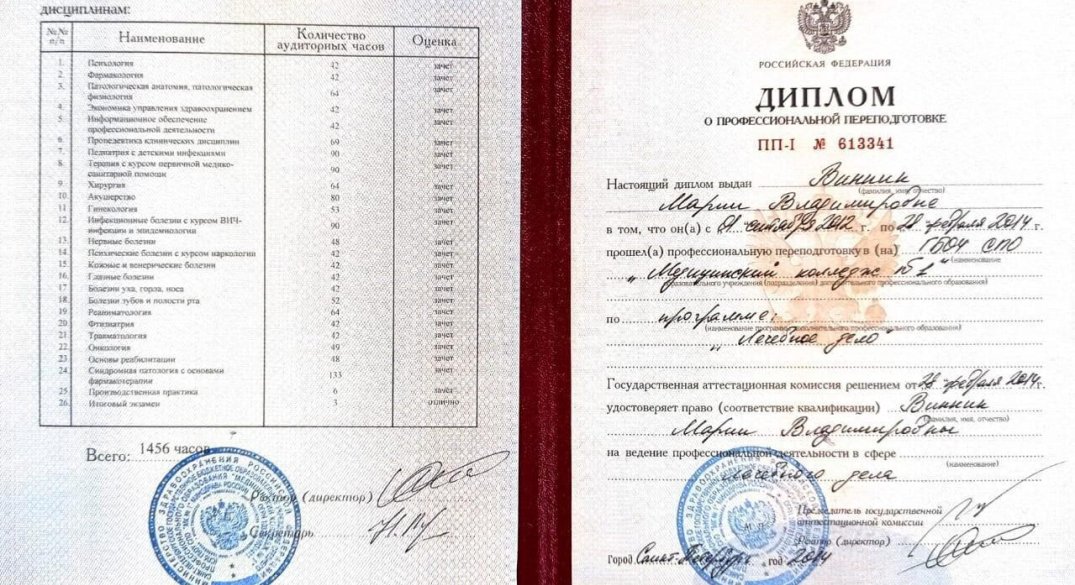 дисциплинам:
№№ п/п Наименование Количество аудиторных часов Оценка
1. Психология 42 зачет
2. Фармакология 42 зачет
3. Патологическая анатомия, патологическая
физиология 64 зачет
4. Экономика управления здравоохранением 42 зачет
5. Информационное обеспечение
профессиональной деятельности 42 зачет
6. Пропедевтика клинических дисциплин 69 зачет
7. Педиатрия с детскими инфекциями 90 зачет
8. Терапия с курсом первичной медико-
санитарной помощи 90 зачет
9. Хирургия 64 зачет
10. Акушерство 80 зачет
11. Гинекология 53 зачет
12. Инфекционные болезни с курсом ВИЧ-
инфекции и эпидемиологии 90 зачет
13. Нервные болезни 48 зачет
14. Психические болезни с курсом наркологии 42 зачет
15. Кожные и венерические болезни 42 зачет
16. Глазные болезни 42 зачет
17. Болезни уха, горла, носа 42 зачет
18. Болезни зубов и полости рта 52 зачет
19. Реаниматология 64 зачет
20. Фтизиатрия 42 зачет
21. Травматология 42 зачет
22. Онкология 49 зачет
23. Основы реабилитации 48 зачет
24. Синдромная патология с основами
фармакотерапии 133 зачет
25. Производственная практика 6 зачет
26. Итоговый экзамен 3 отлично
Всего: 1456 часов
Ректор (директор)
Секретарь
РОССИЙСКАЯ ФЕДЕРАЦИЯ
ДИПЛОМ
О ПРОФЕССИОНАЛЬНОЙ ПЕРЕПОДГОТОВКЕ
ПП-I № 613341
Настоящий диплом выдан Винник
(фамилия, имя, отчество)
Марии Владимировне
в том, что он(а) с 01 сентября 2012 г. по 28 февраля 2014 г.
прошел(а) профессиональную переподготовку в (на) ГБОУ СПО
(наименование
"Медицинский колледж №1"
образовательного учреждения (подразделения) дополнительного профессионального образования)
по программе:
(наименование программы дополнительного профессионального образования)
"Лечебное дело"
Государственная аттестационная комиссия решением от 28 февраля 2014 г.
удостоверяет право (соответствие квалификации) Винник
(фамилия, имя, отчество)
Марии Владимировны
на ведение профессиональной деятельности в сфере
(наименование)
Лечебного дела
Председатель государственной
аттестационной комиссии
Ректор (директор)
М.П.
Город Санкт-Петербург год 2014